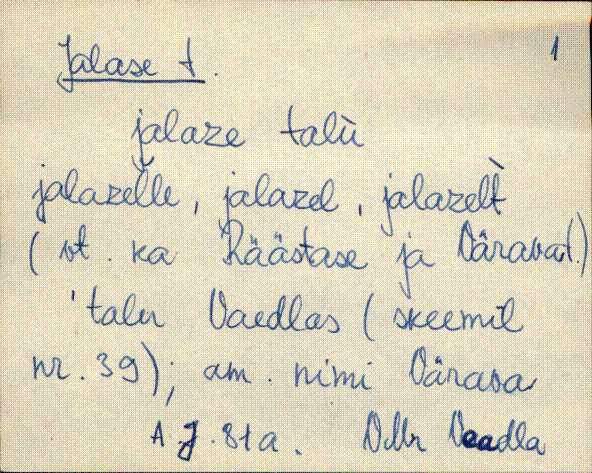 Jalase t. 1
jalaze talù
jalazel̆le, jalazel, jalazel̀t
(vt. ka Räästase ja Värava t.)
'talu Vaedlas (skeemil
nr. 39); am. nimi Värava
A.J. 81a. VMr Vaadla